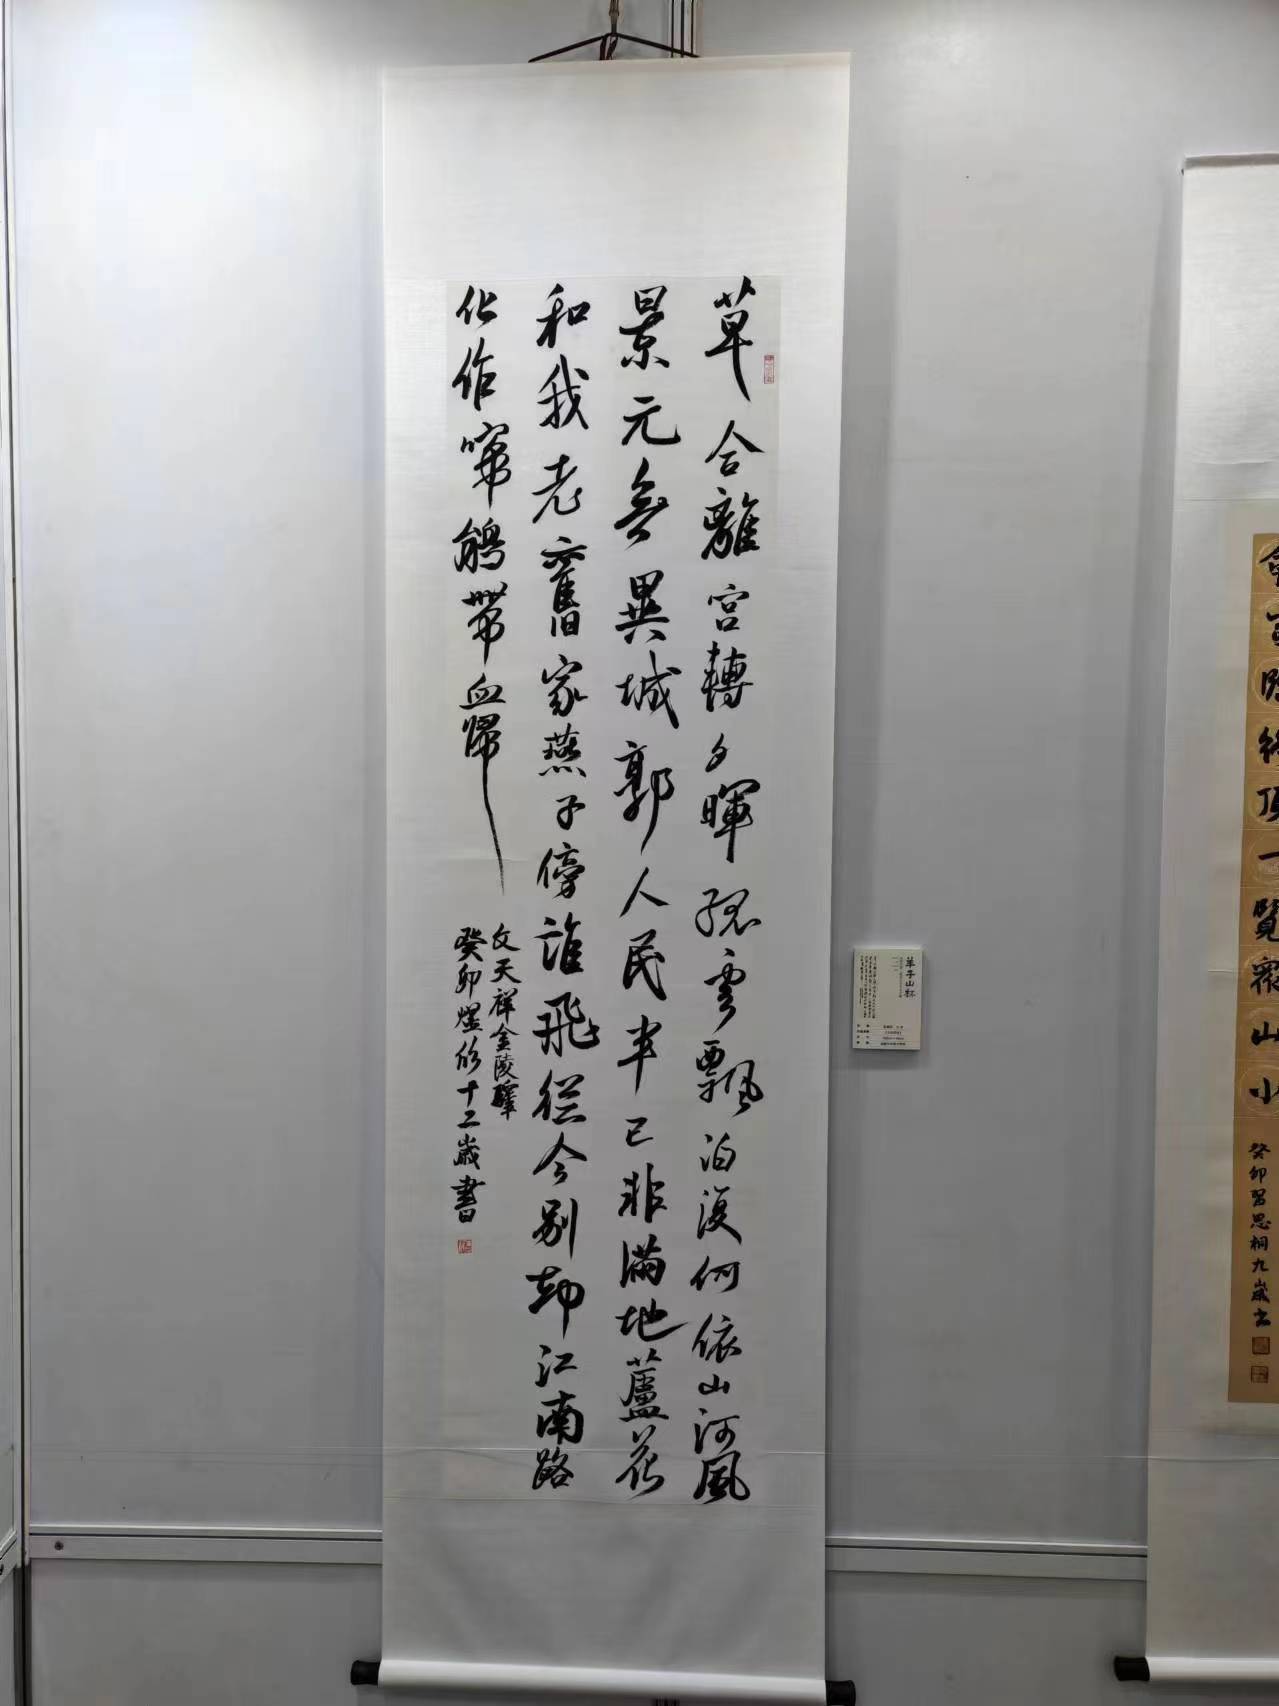 草合離宮轉夕暉孤雲飄泊復何依山河風
景元無異城郭人民半已非滿地蘆花
和我老舊家燕子傍誰飛從今別却江南路
化作啼鵑帶血歸
文天祥金陵驛
癸卯煜欣十二歲書
草予山杯
會當臨絕頂一覽眾山小
癸卯習思桐九歲書